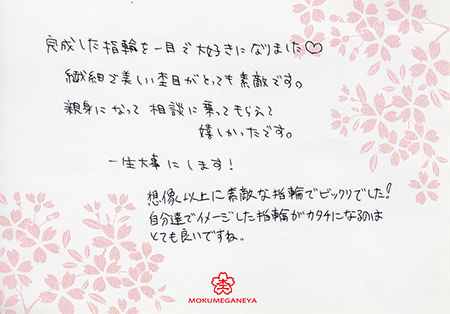 完成した指輪を一目で大好きになりました♡
繊細で美しい杢目がとっても素敵です。
親身になって相談に乗ってもらえて
嬉しかったです。
一生大事にします！
想像以上に素敵な指輪でビックリでした！
自分達でイメージした指輪がカタチになるのは
とても良いですね。
MOKUMEGANEYA